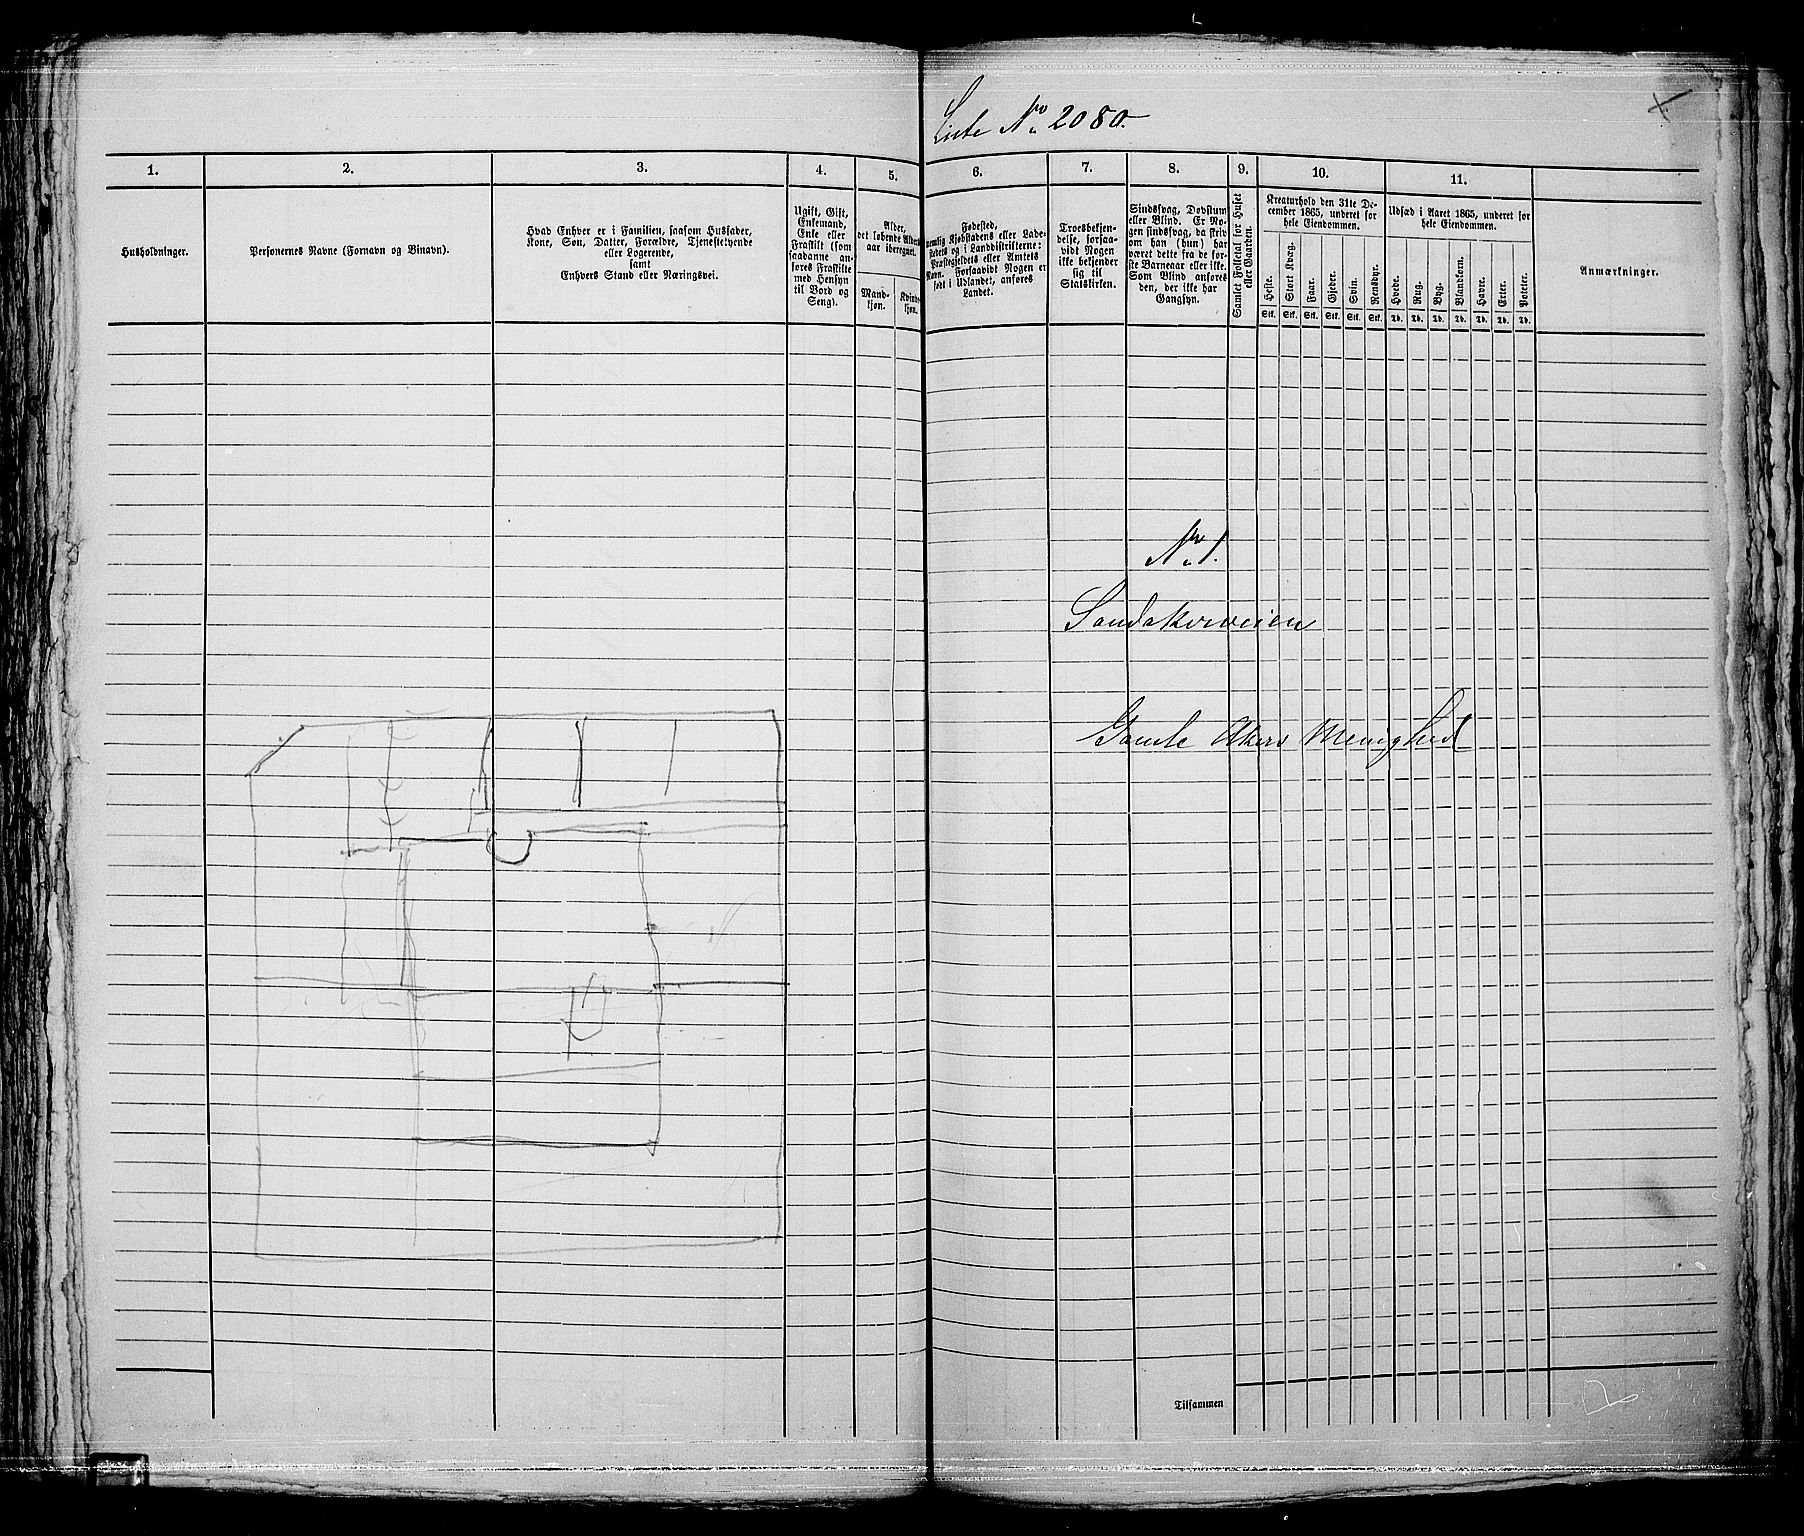 Liste No 2080.
1.
2.
3.
4.
5.
6.
7.
8.
9.
10.
11.
Husholdninger.
Personernes Navne (Fornavn og Binavn).
Hvad Enhver er i Familien, saasom Husfader,
Kone, Søn, Datter, Forældre, Tjenestetyende
eller Logerende,
samt
Enhvers Stand eller Næringsvei.
Ugift, Gift,
Enkemand,
Enke eller
Fraskilt (som
saadanne an-
føres Fraskilte
med Hensyn
til Bord og
Seng).
Alder,
det løbende Alders-
aar iberegnet.
Mand-
kjøn.
Kvinde-
kjøn.
Fødested,
nemlig Kjøbstadens eller Lade-
stedets og i Landdistrikterne:
Præstegjeldets eller Amtets
Navn. Forsaavidt Nogen er
født i Udlandet, anføres
Landet.
Troesbekjen-
delse, forsaa-
vidt Nogen
ikke bekjender
sig til
Statskirken.
Sindssvag, Døvstum
eller Blind. Er No-
gen sindssvag, da skriv
om han (hun) har
været dette fra de før-
ste Barneaar eller ikke.
Som Blind anføres
den, der ikke har
Gangsyn.
Samlet Folketal for Huset
eller Gaarden.
Kreaturhold den 31te De-
cember 1865, underet for
hele Eiendommen.
Heste.
Stort Kvæg.
Faar.
Gjeder.
Svin.
Rensdyr.
Stk. Stk. Stk. Stk. Stk. Stk.
Udsæd i Aaret 1865, underet for
hele Eiendommen.
Hvede.
Rug.
Byg.
Blandkorn.
Havre.
Erter.
Poteter.
Td. Td. Td. Td. Td. Td. Td.
Anmærkninger.
No 1.
Sandakerveien
Gamle Akers Menighed
Tilsammen